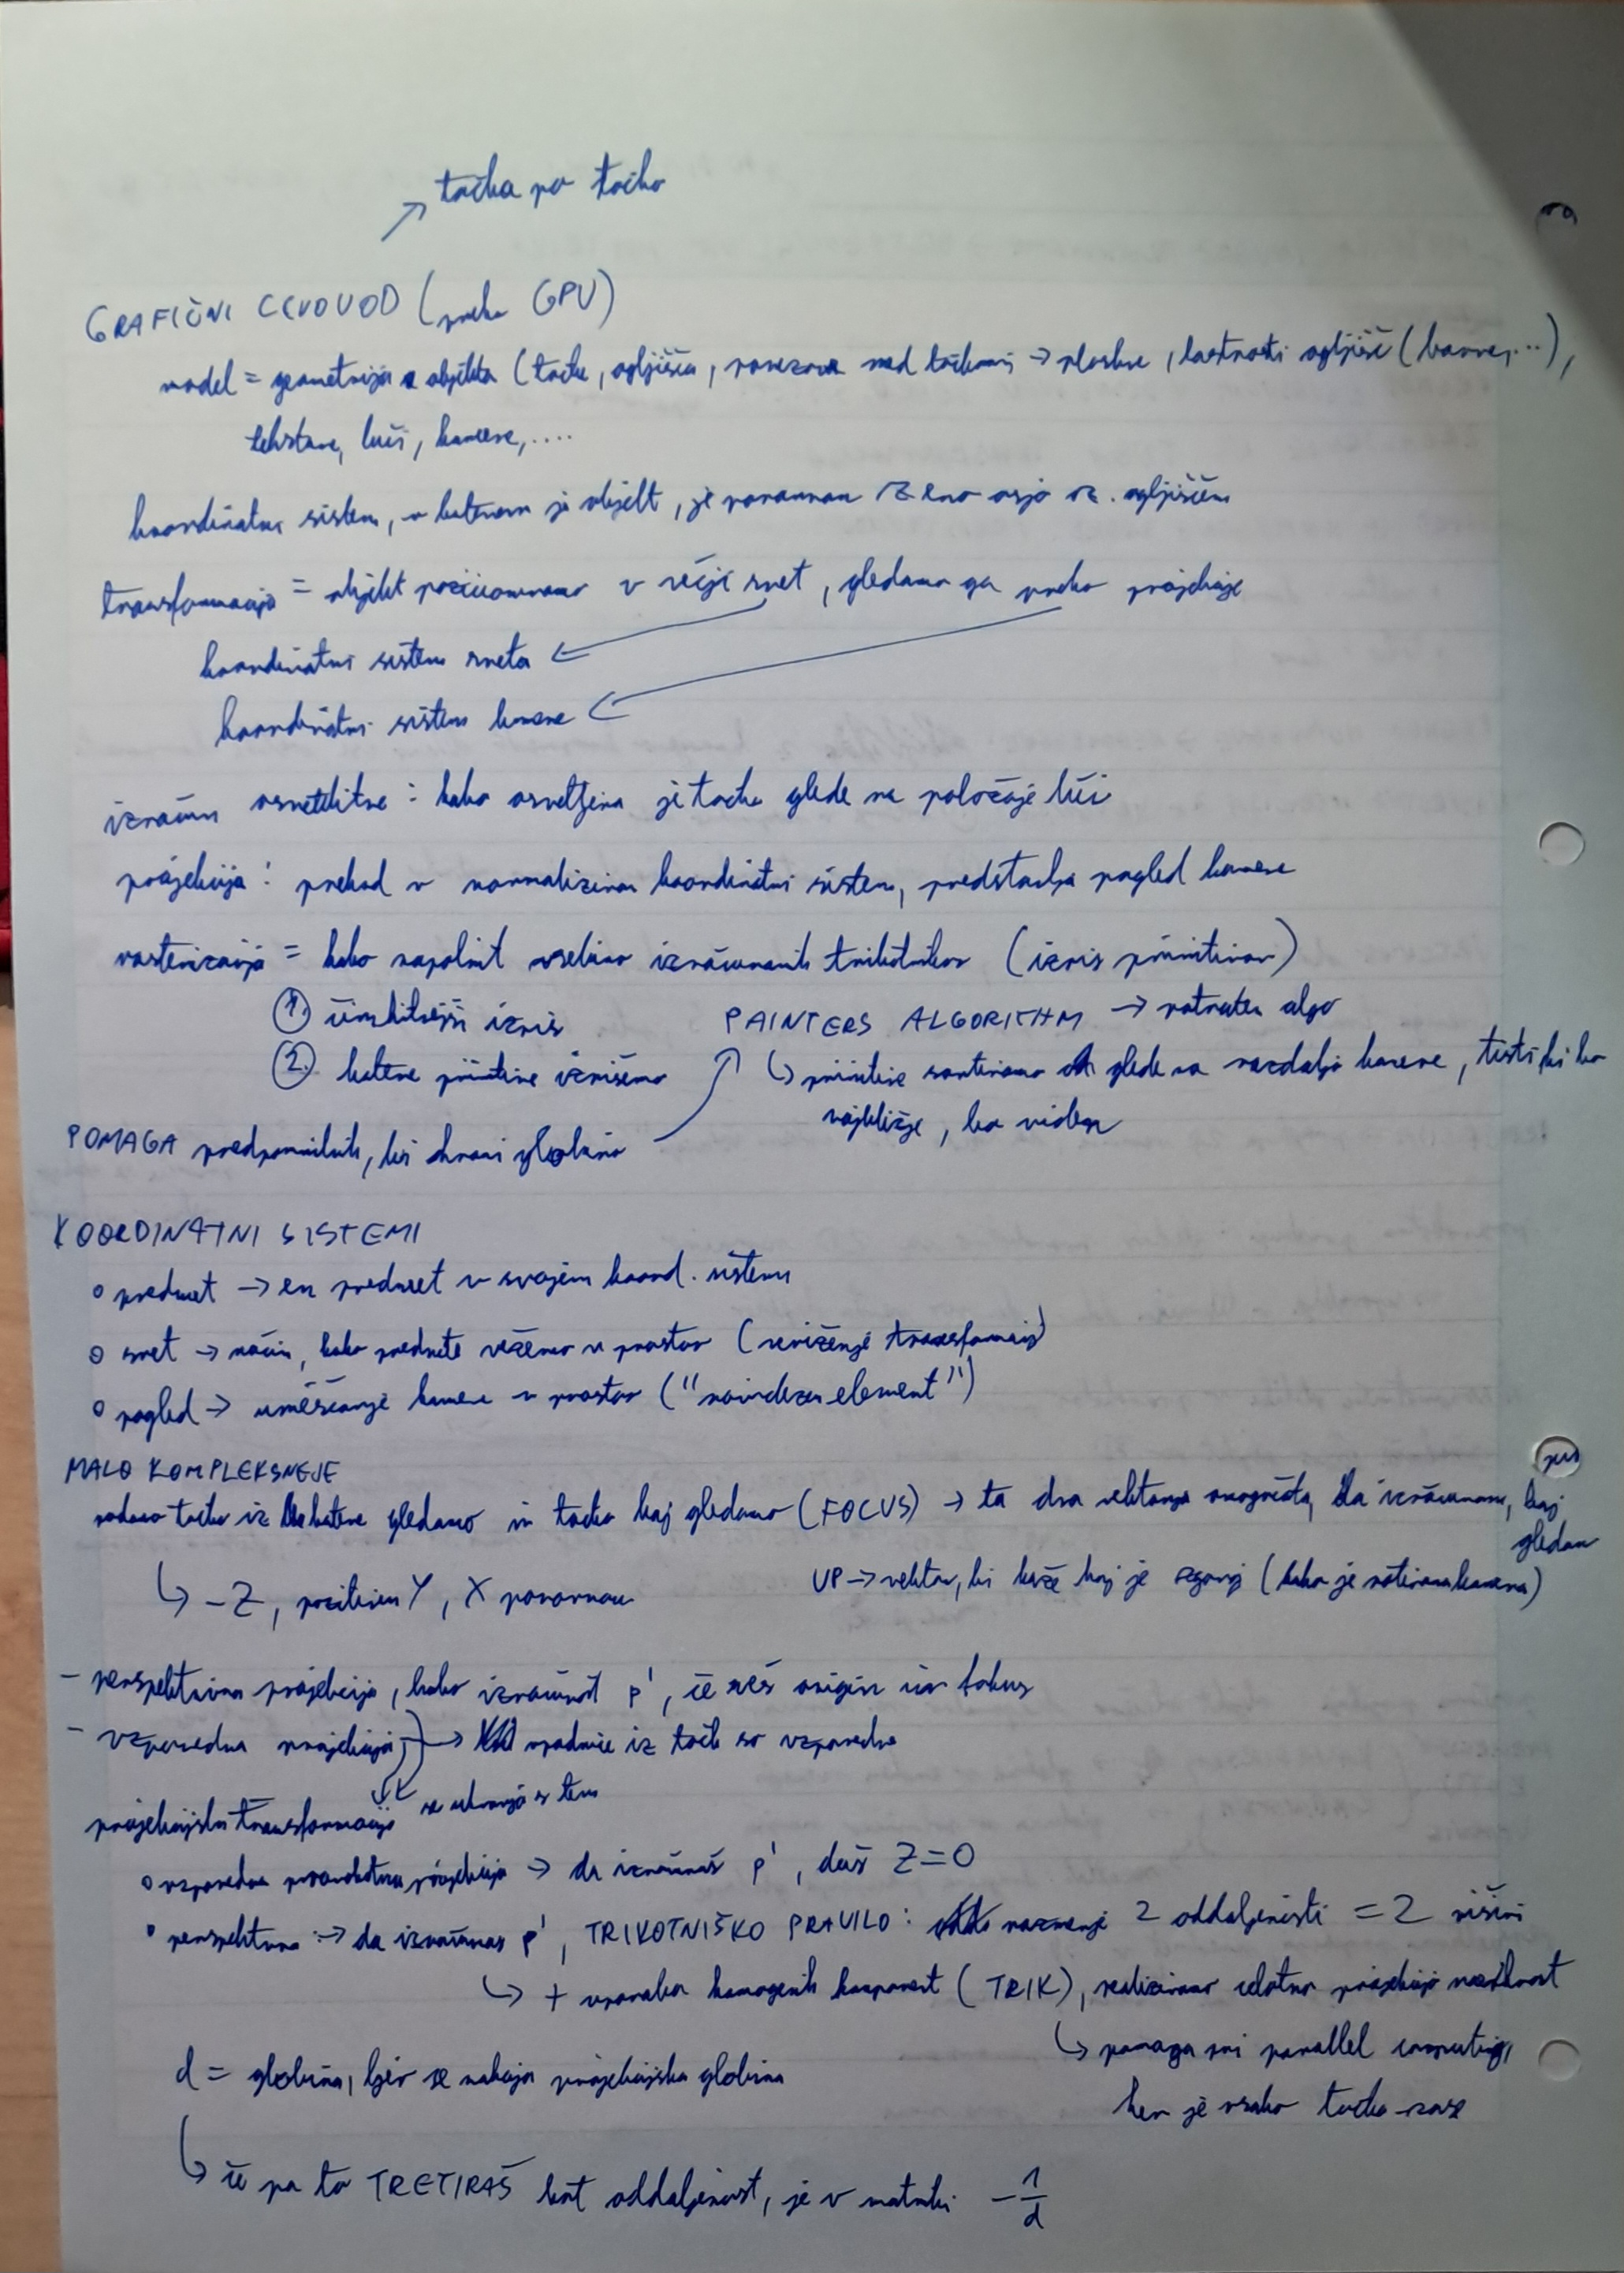 točka po točko
GRAFIČNI CEVOVOD (preko GPU)
model = geometrija objekta (točke, ogljišča, povezave med točkami → ploskve, lastnosti ogljišč (barve,...),
teksture, luči, kamere,....
koordinatni sistem, v katerem je objekt, je poravnan z eno osjo oz. ogljiščem
transformacija = objekt pozicioniramo v večji svet, gledamo ga preko projekcije
koordinatni sistem sveta
koordinatni sistem kamere
izračun osvetlitve : kako osvetljena je točka glede na položaje luči
projekcija : prehod v normaliziran koordinatni sistem, predstavlja pogled kamere
rasterizacija = kako napolnit vsebino izračunanih trikotnikov (izris primitivov)
1. učinkovitejši izris
PAINTERS ALGORITHM → potraten algo
2. katere primitive izrišemo
↳ primitive sortiramo glede na razdaljo kamere, tisti ki bo
najbližje, bo viden
POMAGA predpomnilnik, ki hrani globino
KOORDINATNI SISTEMI
o predmet → en predmet v svojem koord. sistemu
o svet → način, kako predmete vežemo v prostor (nevižanje transformacij)
o pogled → umeščanje kamere v prostor ("navidezen element")
MALO KOMPLEKSNEJE
podamo točko iz katere gledamo in točko kaj gledamo (FOCUS) → ta dva vektorja omogočata, da izračunamo, kaj
gledam
↳ -Z, pozitiven Y, X poravnan
UP → vektor, ki kaže kaj je zgoraj (kako je rotirana kamera)
- perspektivna projekcija, kako izračunat p', če veš origin in fokus
- vzporedna projekcija → vpadnice iz točk so vzporedne
projekcijska transformacija se ukvarja s tem
o vzporedna pravokotna projekcija → da izračunaš p', daš Z=0
o perspektivna → da izračunaš p', TRIKOTNIŠKO PRAVILO: razmerje 2 oddaljenosti = 2 višini
↳ + uporaba homogenih komponent (TRIK), realiziramo celotno projekcijo naenkrat
↳ pomaga pri parallel computing,
ker je vsaka točka zase
d = globina, kjer se nahaja projekcijska globina
↳ če pa to TRETIRAŠ kot oddaljenost, je v matriki -1/d